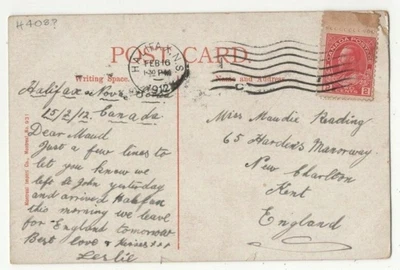 H408?
POST CARD.
HALIFAX, N.S.
FEB 16
1912
CANADA POSTAGE
2 2
Writing Space.
Name and Address.
Halifax Nova Scotia
15/2/12. Canada
Dear Maud
Just a few lines to
let you know we
left St John yesterday
and arrived Halifax
this morning we leave
for England tomorrow
Best love & Kisses xxx
Leslie
Miss Maudie Reading
65 Hardens Manorway
New Charlton
Kent
England